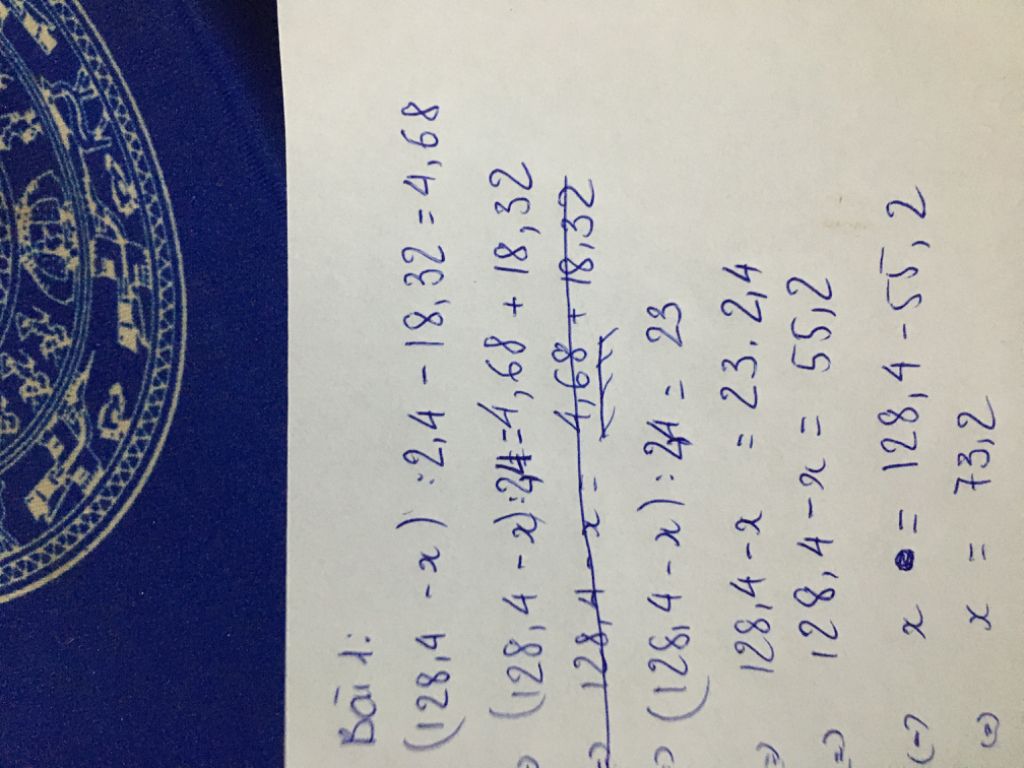 Bài 1:
(128,4 - x) : 2,4 - 18,32 = 4,68
=> (128,4 - x) : 2,4 = 4,68 + 18,32
=> 128,4 - x = 4,68 + 18,32
=> (128,4 - x) : 2,4 = 23
=> 128,4 - x = 23.2,4
=> 128,4 - x = 55,2
(=) x = 128,4 - 55,2
(=) x = 73,2